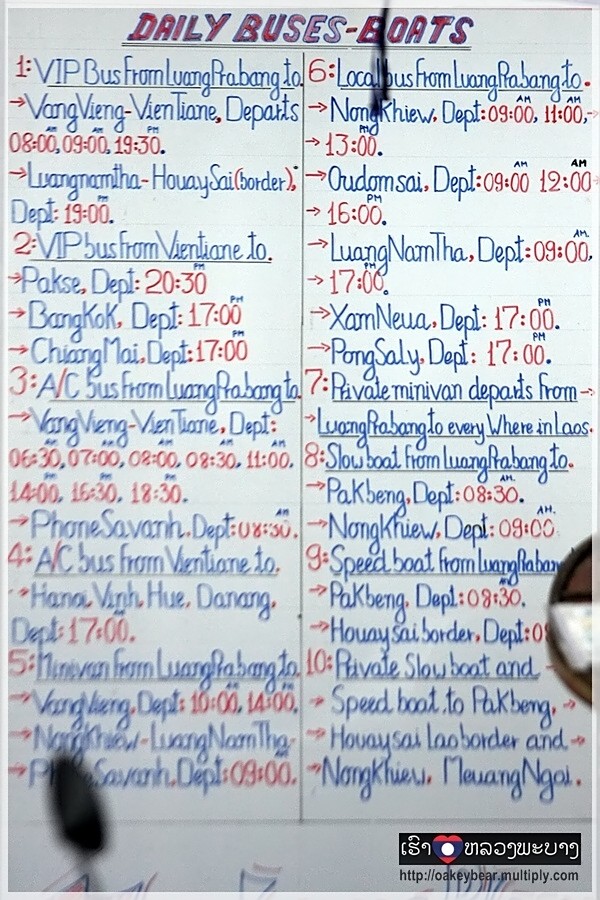 DAILY BUSES-BOATS
1: VIP Bus From Luang Prabang to.
→ Vang Vieng-Vien Tiane, Departs
08:00, AM 09:00, AM 19:30. PM
→ Luangnamtha-Houay Sai (border),
Dept: 19:00. PM
2: VIP bus From Vientiane to.
→ Pakse, Dept: 20:30 PM
→ BangKoK, Dept: 17:00 PM
→ Chiang Mai, Dept: 17:00 PM
3: A/C bus From Luang Prabang to
→ Vang Vieng-Vien Tiane, Dept:
06:30, AM 07:00, AM 08:00, AM 08:30, AM 11:00. AM
14:00, 16:30, 18:30.
→ Phone Savanh, Dept: 08:30. AM
4: A/C bus From Vientiane to.
→ Hanoi, Vinh, Hue, Danang,
Dept: 17:00.
5: Minivan From Luang Prabang to
→ Vang Vieng, Dept: 10:00, AM 14:00, PM
→ Nong Khiew-Luang Nam Tha-
→ Savanh, Dept: 09:00.
6: Local bus From Luang Prabang to.
→ Nong Khiew, Dept: 09:00, AM 11:00, AM →
→ 13:00. PM
→ Oudom sai, Dept: 09:00 AM 12:00 AM →
→ 16:00. PM
→ Luang Nam Tha, Dept: 09:00, AM.
→ 17:00. PM
→ Xam Neua, Dept: 17:00. PM
→ Pong Saly, Dept: 17:00. PM
7: Private minivan departs from →
→ Luang Prabang to every Where in Laos.
8: Slow boat From Luang Prabang to.
→ PaKbeng, Dept: 08:30. AM.
→ Nong Khiew, Dept: 09:00 AM.
9: Speed boat from Luang Praban
→ PaKbeng, Dept: 08:30. AM
→ Houay Sai border, Dept:
10: Private Slow boat and
→ Speed boat to PaKbeng, →
→ Houaysai Lao border and →
→ Nong Khiew, Meuang Ngoi.
ເຮົາ ຫລວງພະບາງ
http://oakeybear.multiply.com